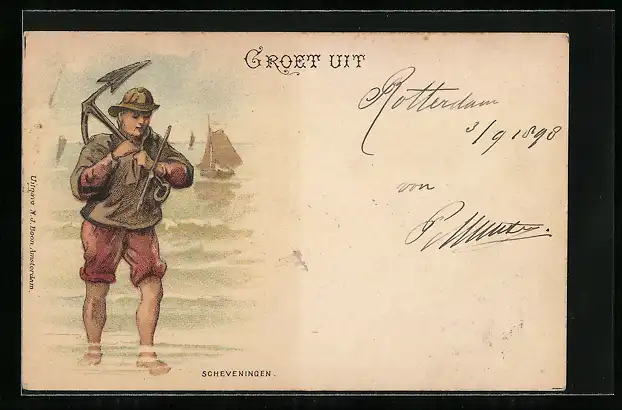 GROET UIT
Rotterdam
3/9 1898
von
Uitgave N. J. Boon, Amsterdam.
SCHEVENINGEN.